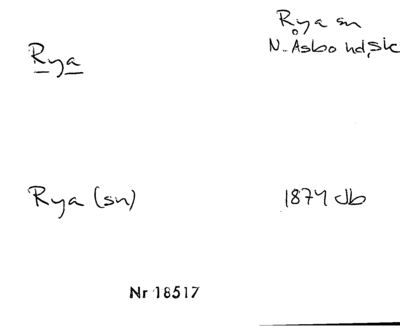 Rya
Rya sn
N. Åsbo hd, Sk
Rya (sn)
1874 Jb
Nr 18517